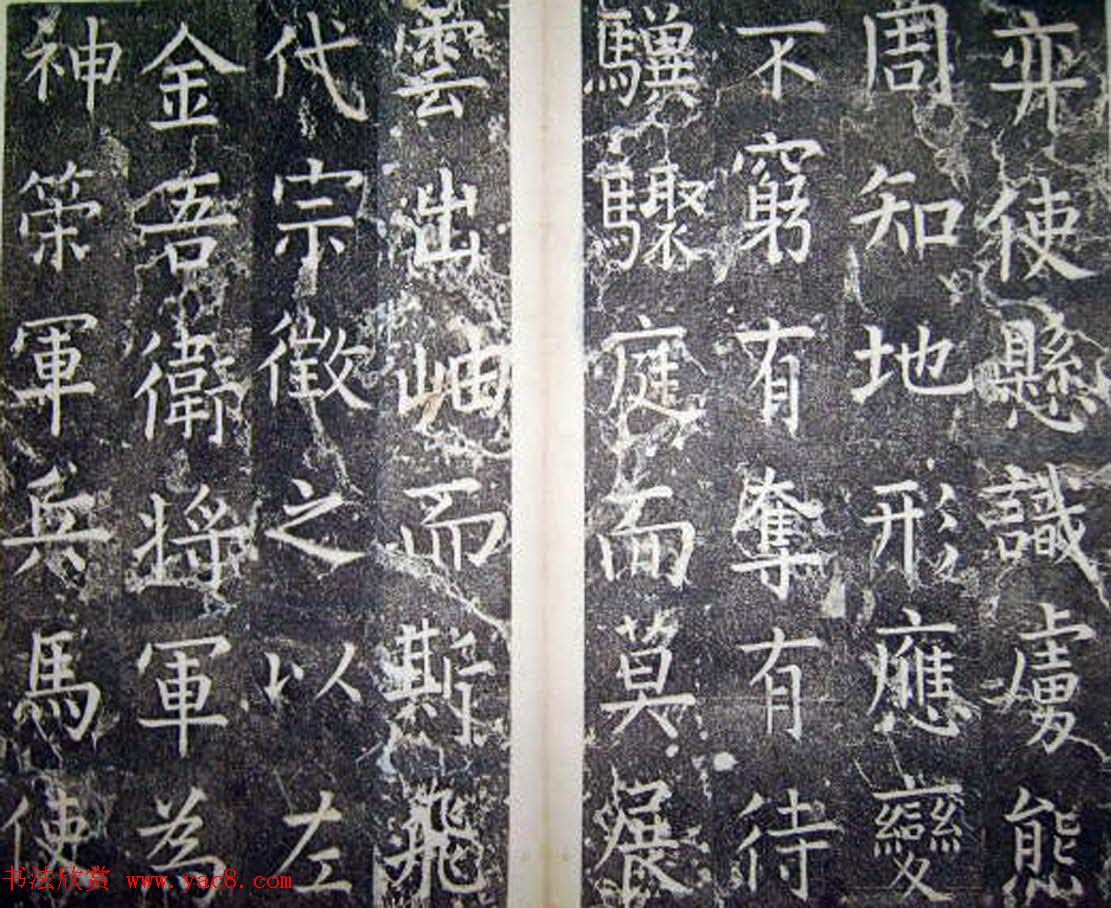 弈使懸識虜態
周知地形應變
不窮有奪有待
驥騄庭而莫展
雲出岫而斯飛
代宗徵之以左
金吾衛將軍為
神策軍兵馬使
书法欣赏 www.yac8.com